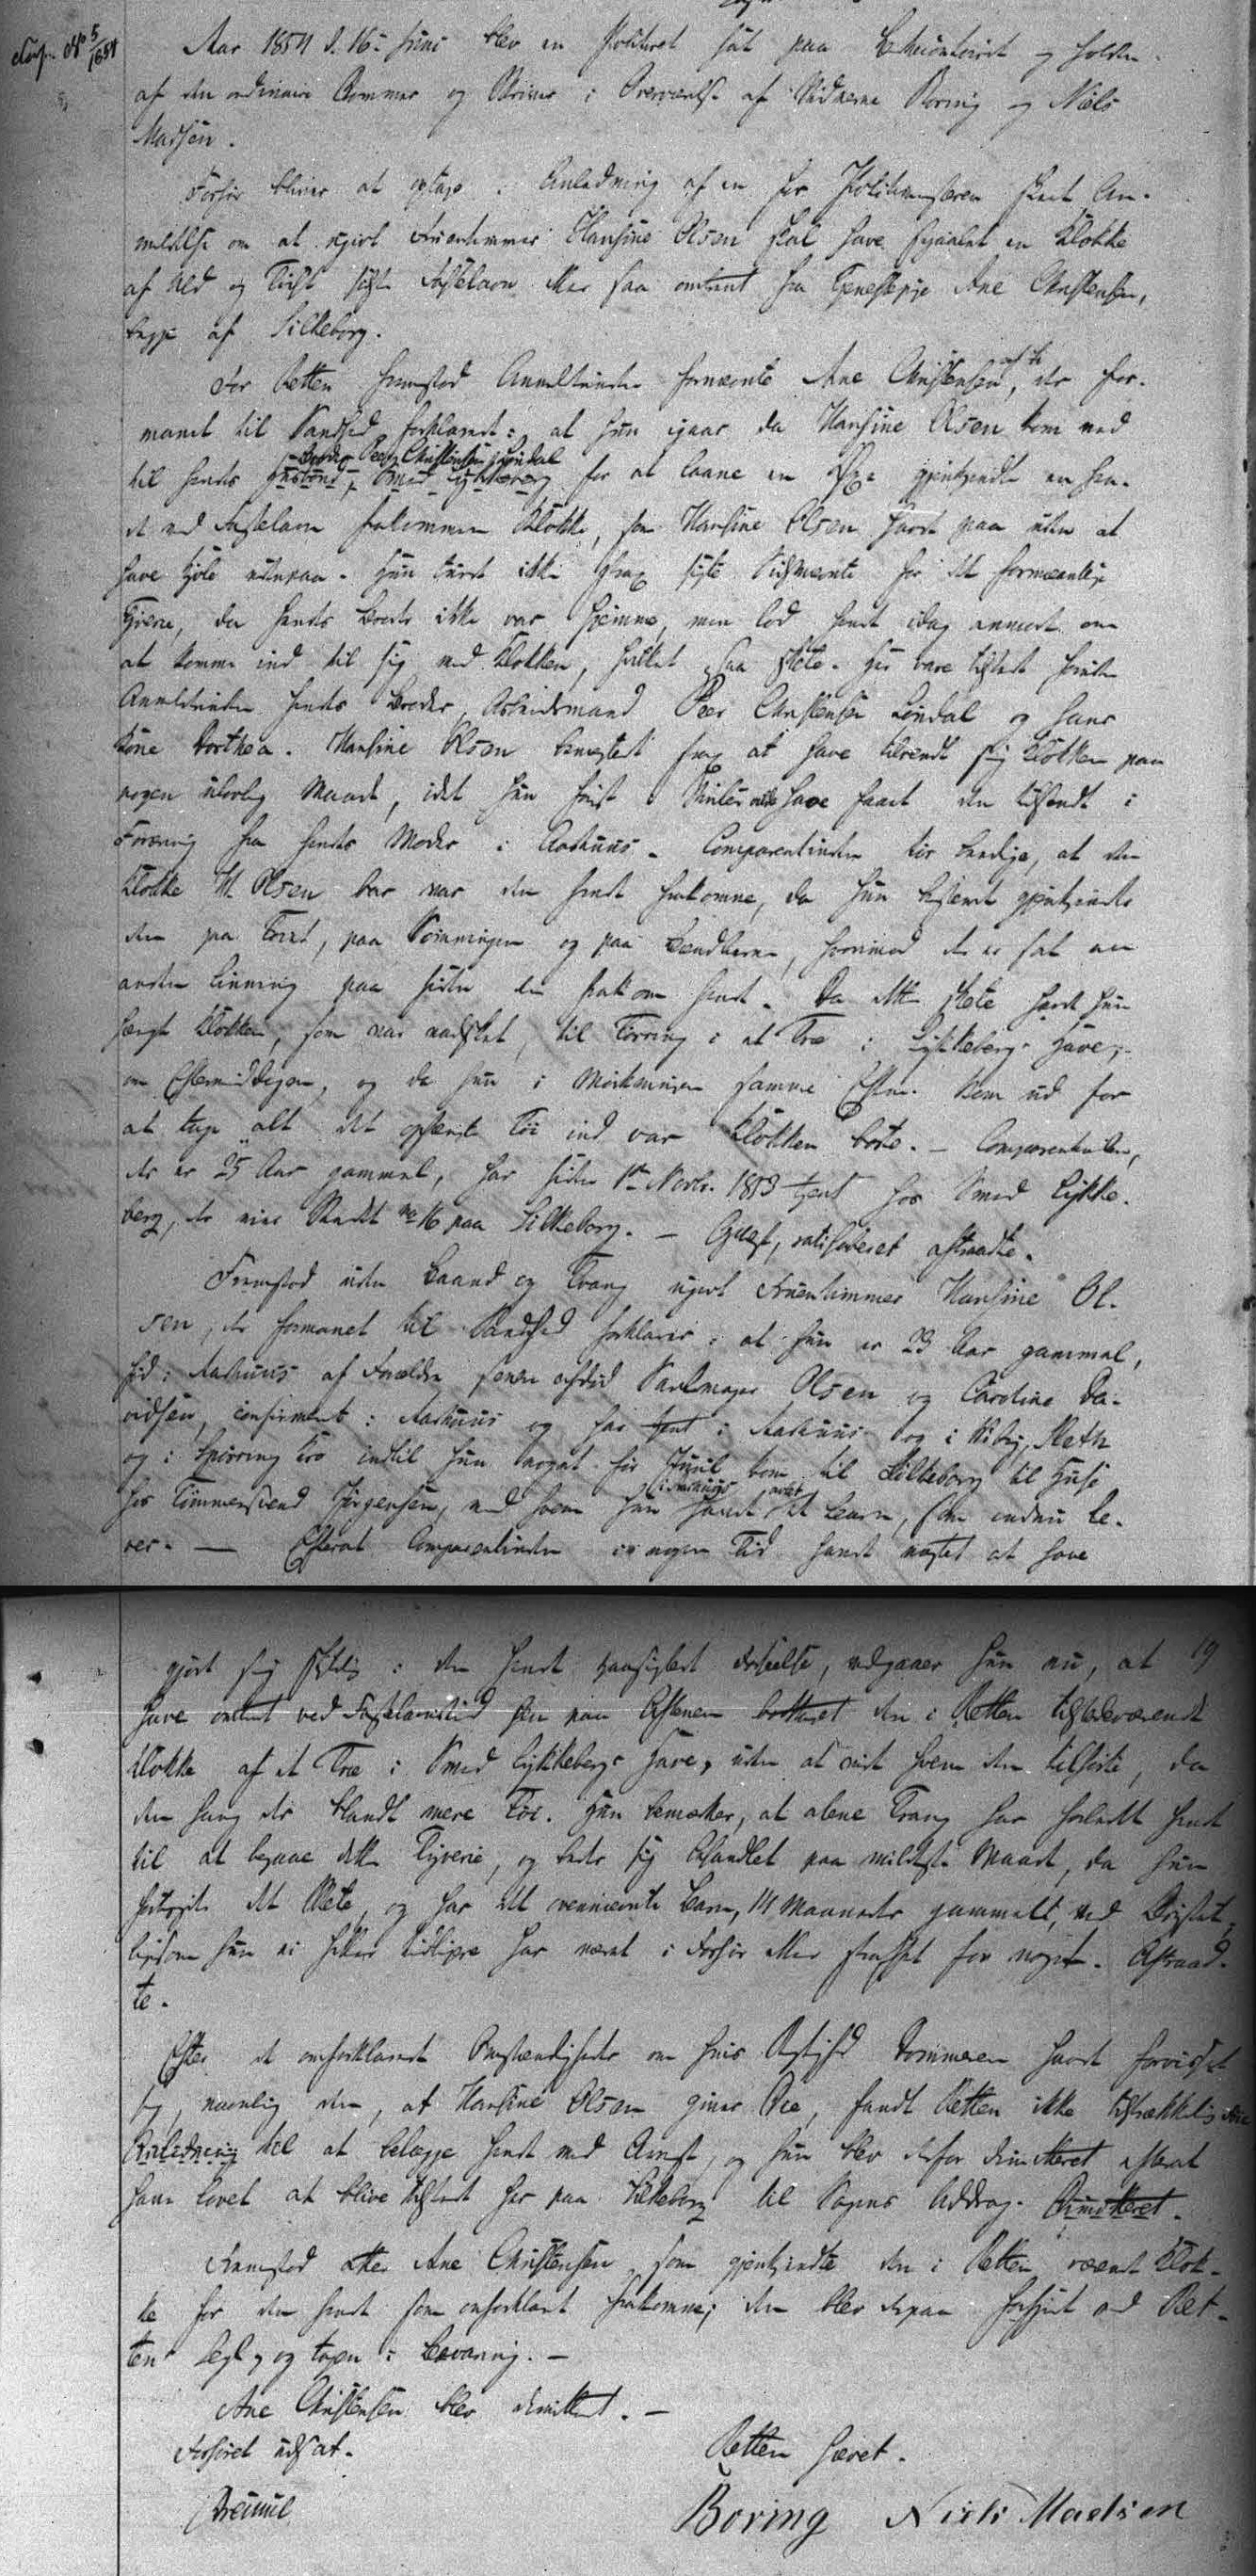 No 5/1854
Aar 1854 d. 16 Juni blev en Politiret sat paa Birkecontoiret og holden
af den ordinaire Dommer og Skriver i Overværelse af Vidnerne Boring og Niels
Madsen.
Forhør bliver at optage i Anledning af en for Politimesteren skeet An-
meldelse om at ugivt Fruentimmer Hansine Olsen skal have stjaalet en Klokke
af Uld og Tvist sidste Fastelavn eller saa omtrent fra Tjenestepige Ane Christensen,
begge af Silkeborg.
For Retten fremstod Anmelderinden fornævnte Ane Christensen, der for-
manet til Sandhed forklarede: at hun igaar da Hansine Olsen kom ned
Broder Peer Christensen Lindal
til hendes Huusbond, Smed Lykkeberg for at laane en Øxe gjenkjendte en hen-
de ved Fastelavn frakommen Klokke, som Hansine Olsen havde paa uden at
have Kjole udenpaa. Hun turde ikke strax sigte Sidstnævnte for det formeentlige
Tyverie, da hendes Broder ikke var hjemme, men lod hende idag anmode om
at komme ind til sig med Klokken, hvilket saa skete. Her vare tilstede foruden
Anmelderinden hendes Broder, Arbeidsmand Peer Christensen Lindal og hans
Kone Dorthea. Hansine Olsen benegtede strax at have tilvendt sig Klokken paa
nogen ulovlig Maade, idet hun sidst i Vinter vilde have faaet den tilsendt i
Foræring fra hendes Moder i Aarhuus. Comparentinden tør beedige, at den
Klokke H. Olsen bar var den hende frakomne, da hun bestemt gjenkjendte
den paa Tøiet, paa Sømningen og paa Bændlerne, hvorimod der er sat en
anden Linning paa siden den frakom hende. Da dette skete havde hun
hængt Klokken, som var vadsket, til Tørring i et Træ i Lykkebergs Have,
om Eftermiddagen, og da hun i Mørkningen samme Aften kom ud for
at tage alt det ophængte Tøi ind var Klokken borte. – Comparentinden,
der er 25 Aar gammel, har siden 1te Novbr. 1853 tjent hos Smed Lykke-
berg, der eier Stedet No 16 paa Silkeborg. – Oplæst, ratihaberet aftraadte.
Fremstod uden Baand og Tvang ugivt Fruentimmer Hansine Ol-
sen, der formanet til Sandhed forklarer: at hun er 23 Aar gammel,
fød i Aarhuus af Forældre senere afdød Karlmager Olsen og Caroline Da-
vidsen, confirmeret i Aarhuus og har tjent i Aarhuus og i Viby,
og i Spørring Kro indtil hun noget før Juul kom til Silkeborg til Huse
i Aarhuus avlet
hos Tømmersvend Jørgensen, med hvem hun havde et Barn, som endnu le-
ver. – Efterat Comparentinden i nogen Tid havde negtet at have
19
gjort sig skyldig i den hende paasigtede Forseelse, udgaaer hun nu, at
have omtrent ved Fastelavnstid sen paa Aftenen borttaget den i Retten tilstedeværende
Klokke af et Træ i Smed Lykkebergs Have, uden at vide hvem den tilhørte, da
den hang der blandt mere Tøi. Hun bemærker, at alene Trang har forledt hende
til at begaae dette Tyverie, og beder sig behandlet paa mildeste Maade, da hun
fortryder det Skete, og har det ommeldte Barn, 14 Maaneder gammelt, ved Brystet,
ligesom hun ei heller tidligere har været i Forhør eller straffet for noget. Aftraad-
te.
Efter de omforklarede Omstændigheder om hvis Rigtighed Dommeren havde forvisset
sig, navnlig den, at Hansine Olsen giver Die, fandt Retten ikke tilstrækkelig
Anledning til at belægge hende med Arrest, og hun blev derfor dimitteret efterat
have lovet at blive tilstede her paa Silkeborg til Sagens Uddrag. Dimitteret.
Fremstod atter Ane Christensen som gjenkjendte den i Retten værende Klok-
ke for den hende som omforklaret frakomne; den blev derpaa forsynet med Ret-
tens Segl og tagen i Bevaring. –
Ane Christensen blev dimitteret. –
Forhøret udsat.
Retten hævet.
Boring Niels Madsen